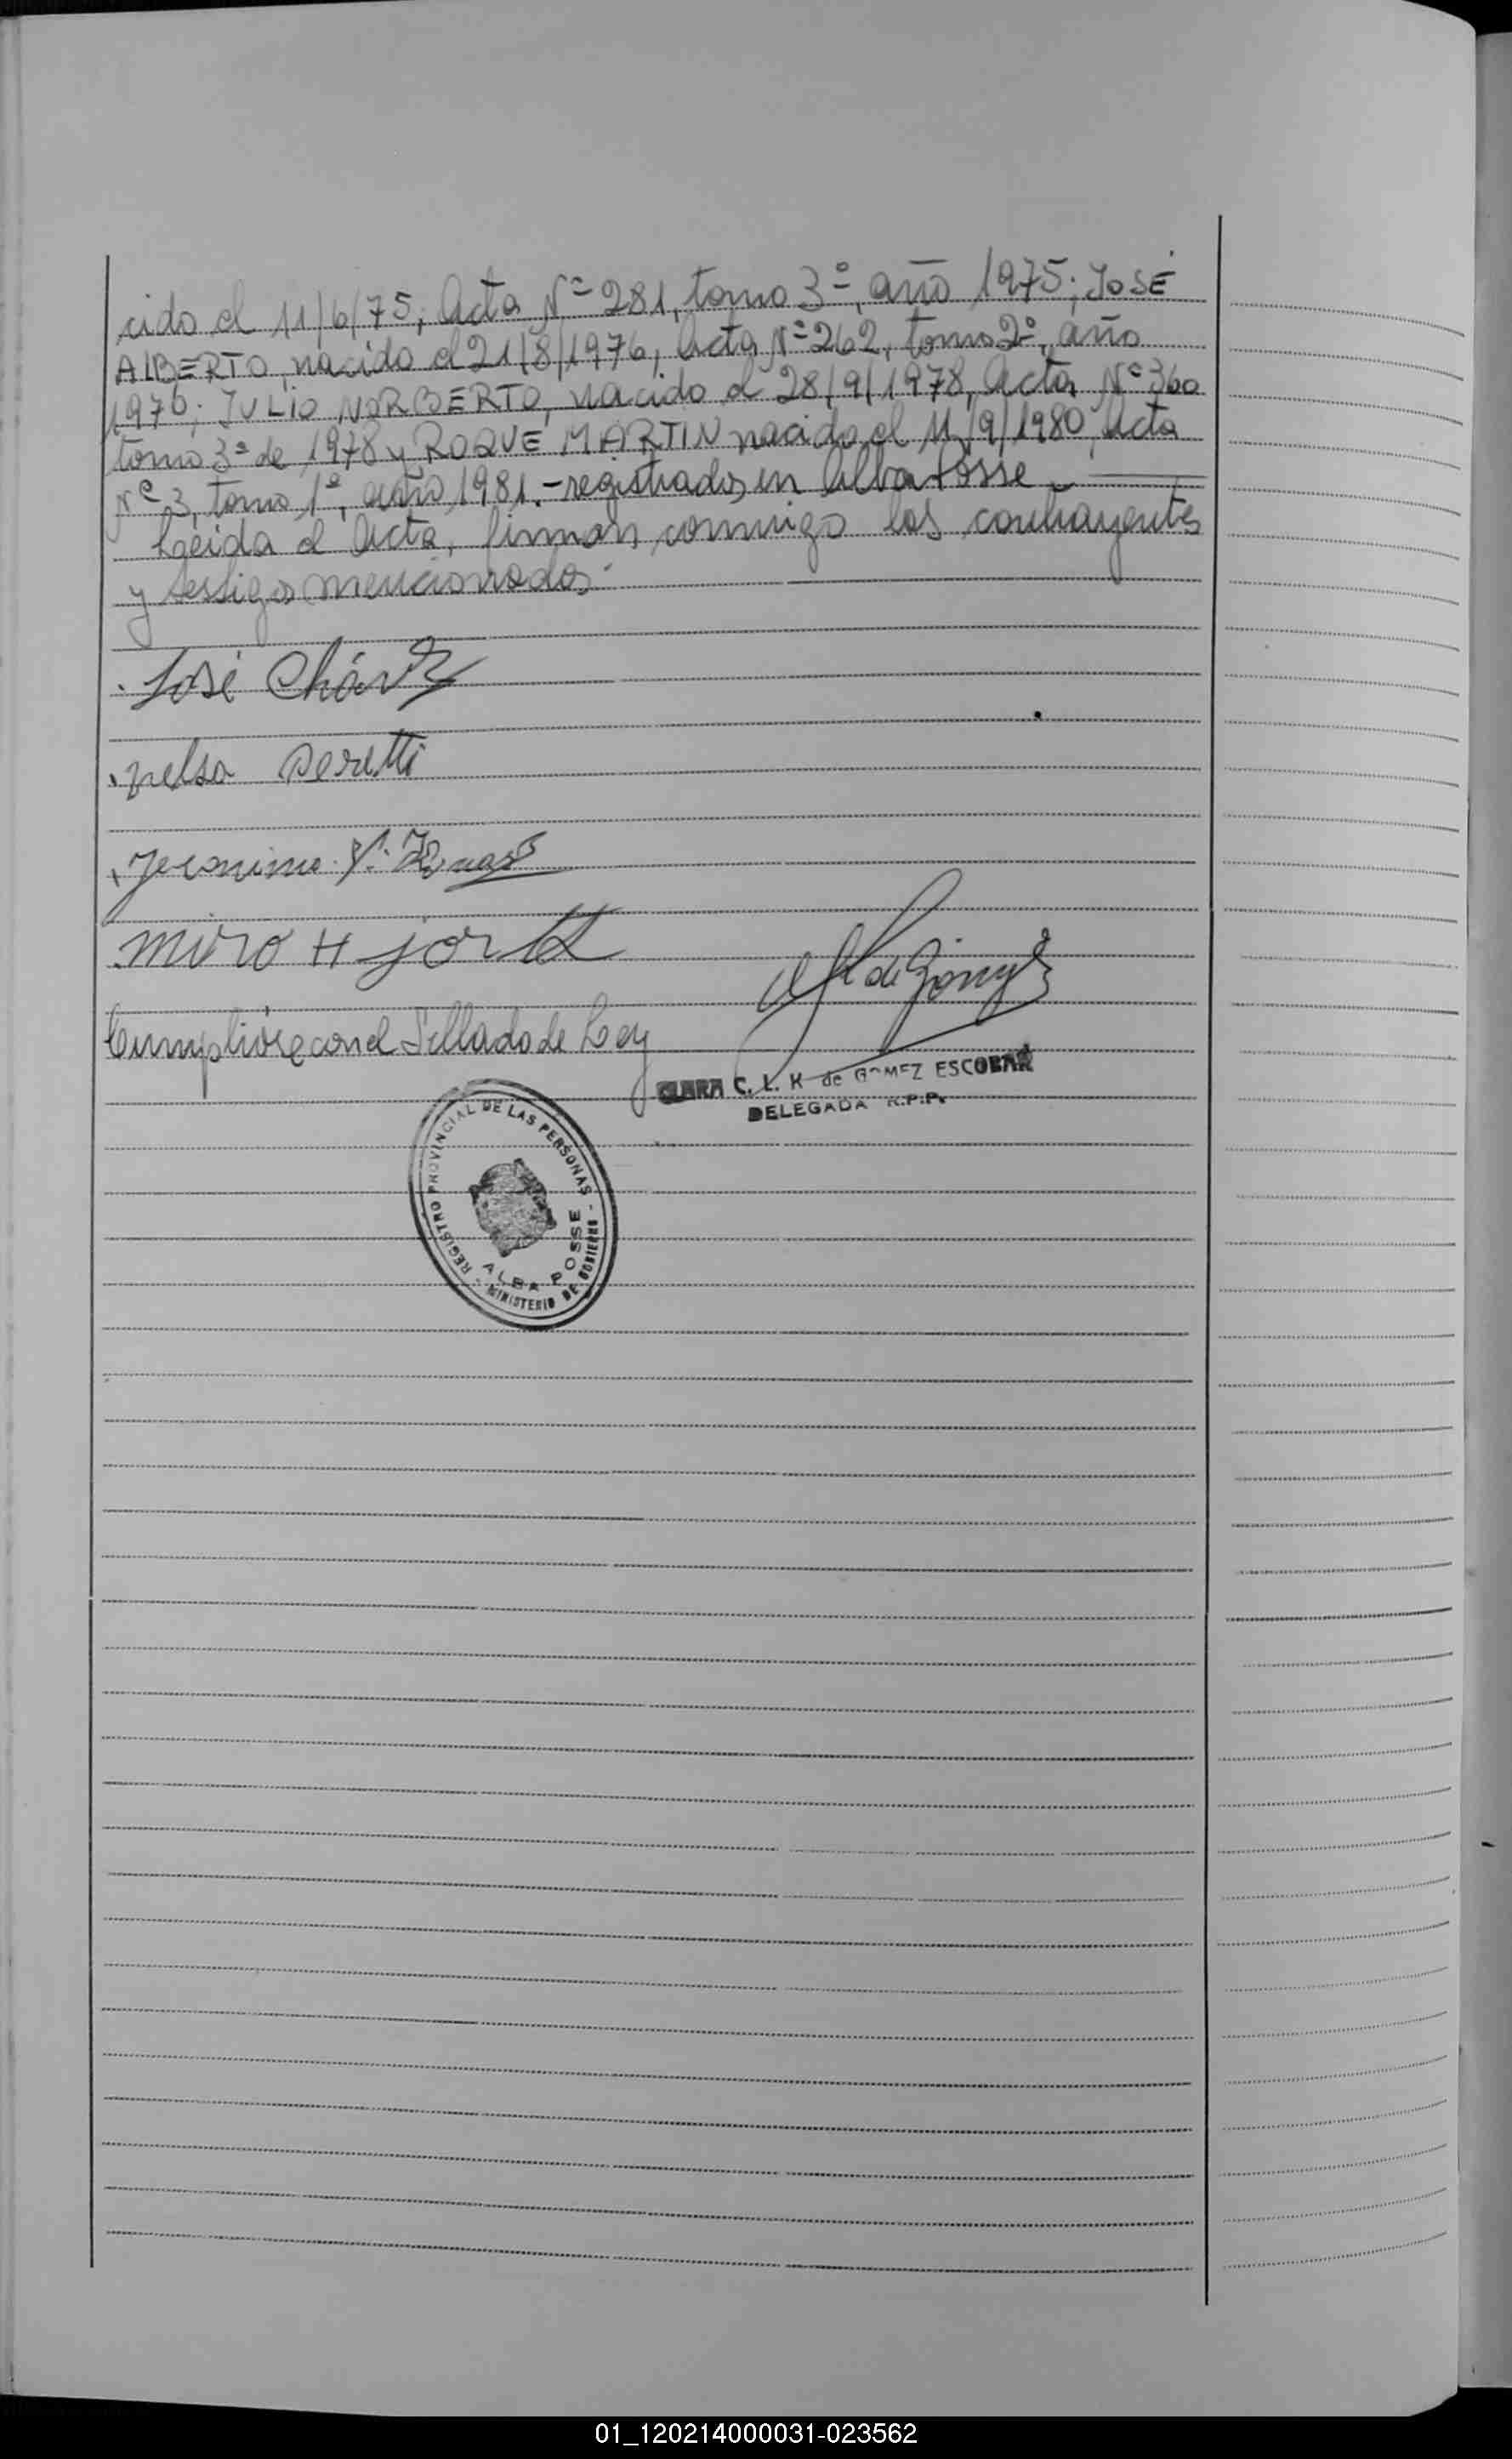 cido el 11/6/75; Acta Nº 281, tomo 3º, año 1975; JOSÉ
ALBERTO, nacido el 21/8/1976, Acta Nº 262, tomo 2º, año
1976; JULIO NORBERTO, nacido el 28/9/1978, Acta Nº 360
tomo 3º de 1978 y ROQUE MARTIN nacido el 11/9/1980, Acta
Nº 3, tomo 1º, año 1981.- registrados en Alba Posse
Leida el Acta, firman conmigo los contrayentes
y testigos mencionados.
José Cháv
nelsa Peretti
Jeronimo
miro H jor
Cumplióse con el Sellado de Ley
CLARA C. L. K de GOMEZ ESCOBAR
DELEGADA R.P.P.
REGISTRO PROVINCIAL DE LAS PERSONAS - MINISTERIO DE GOBIERNO -
ALBA POSSE
01_120214000031-023562